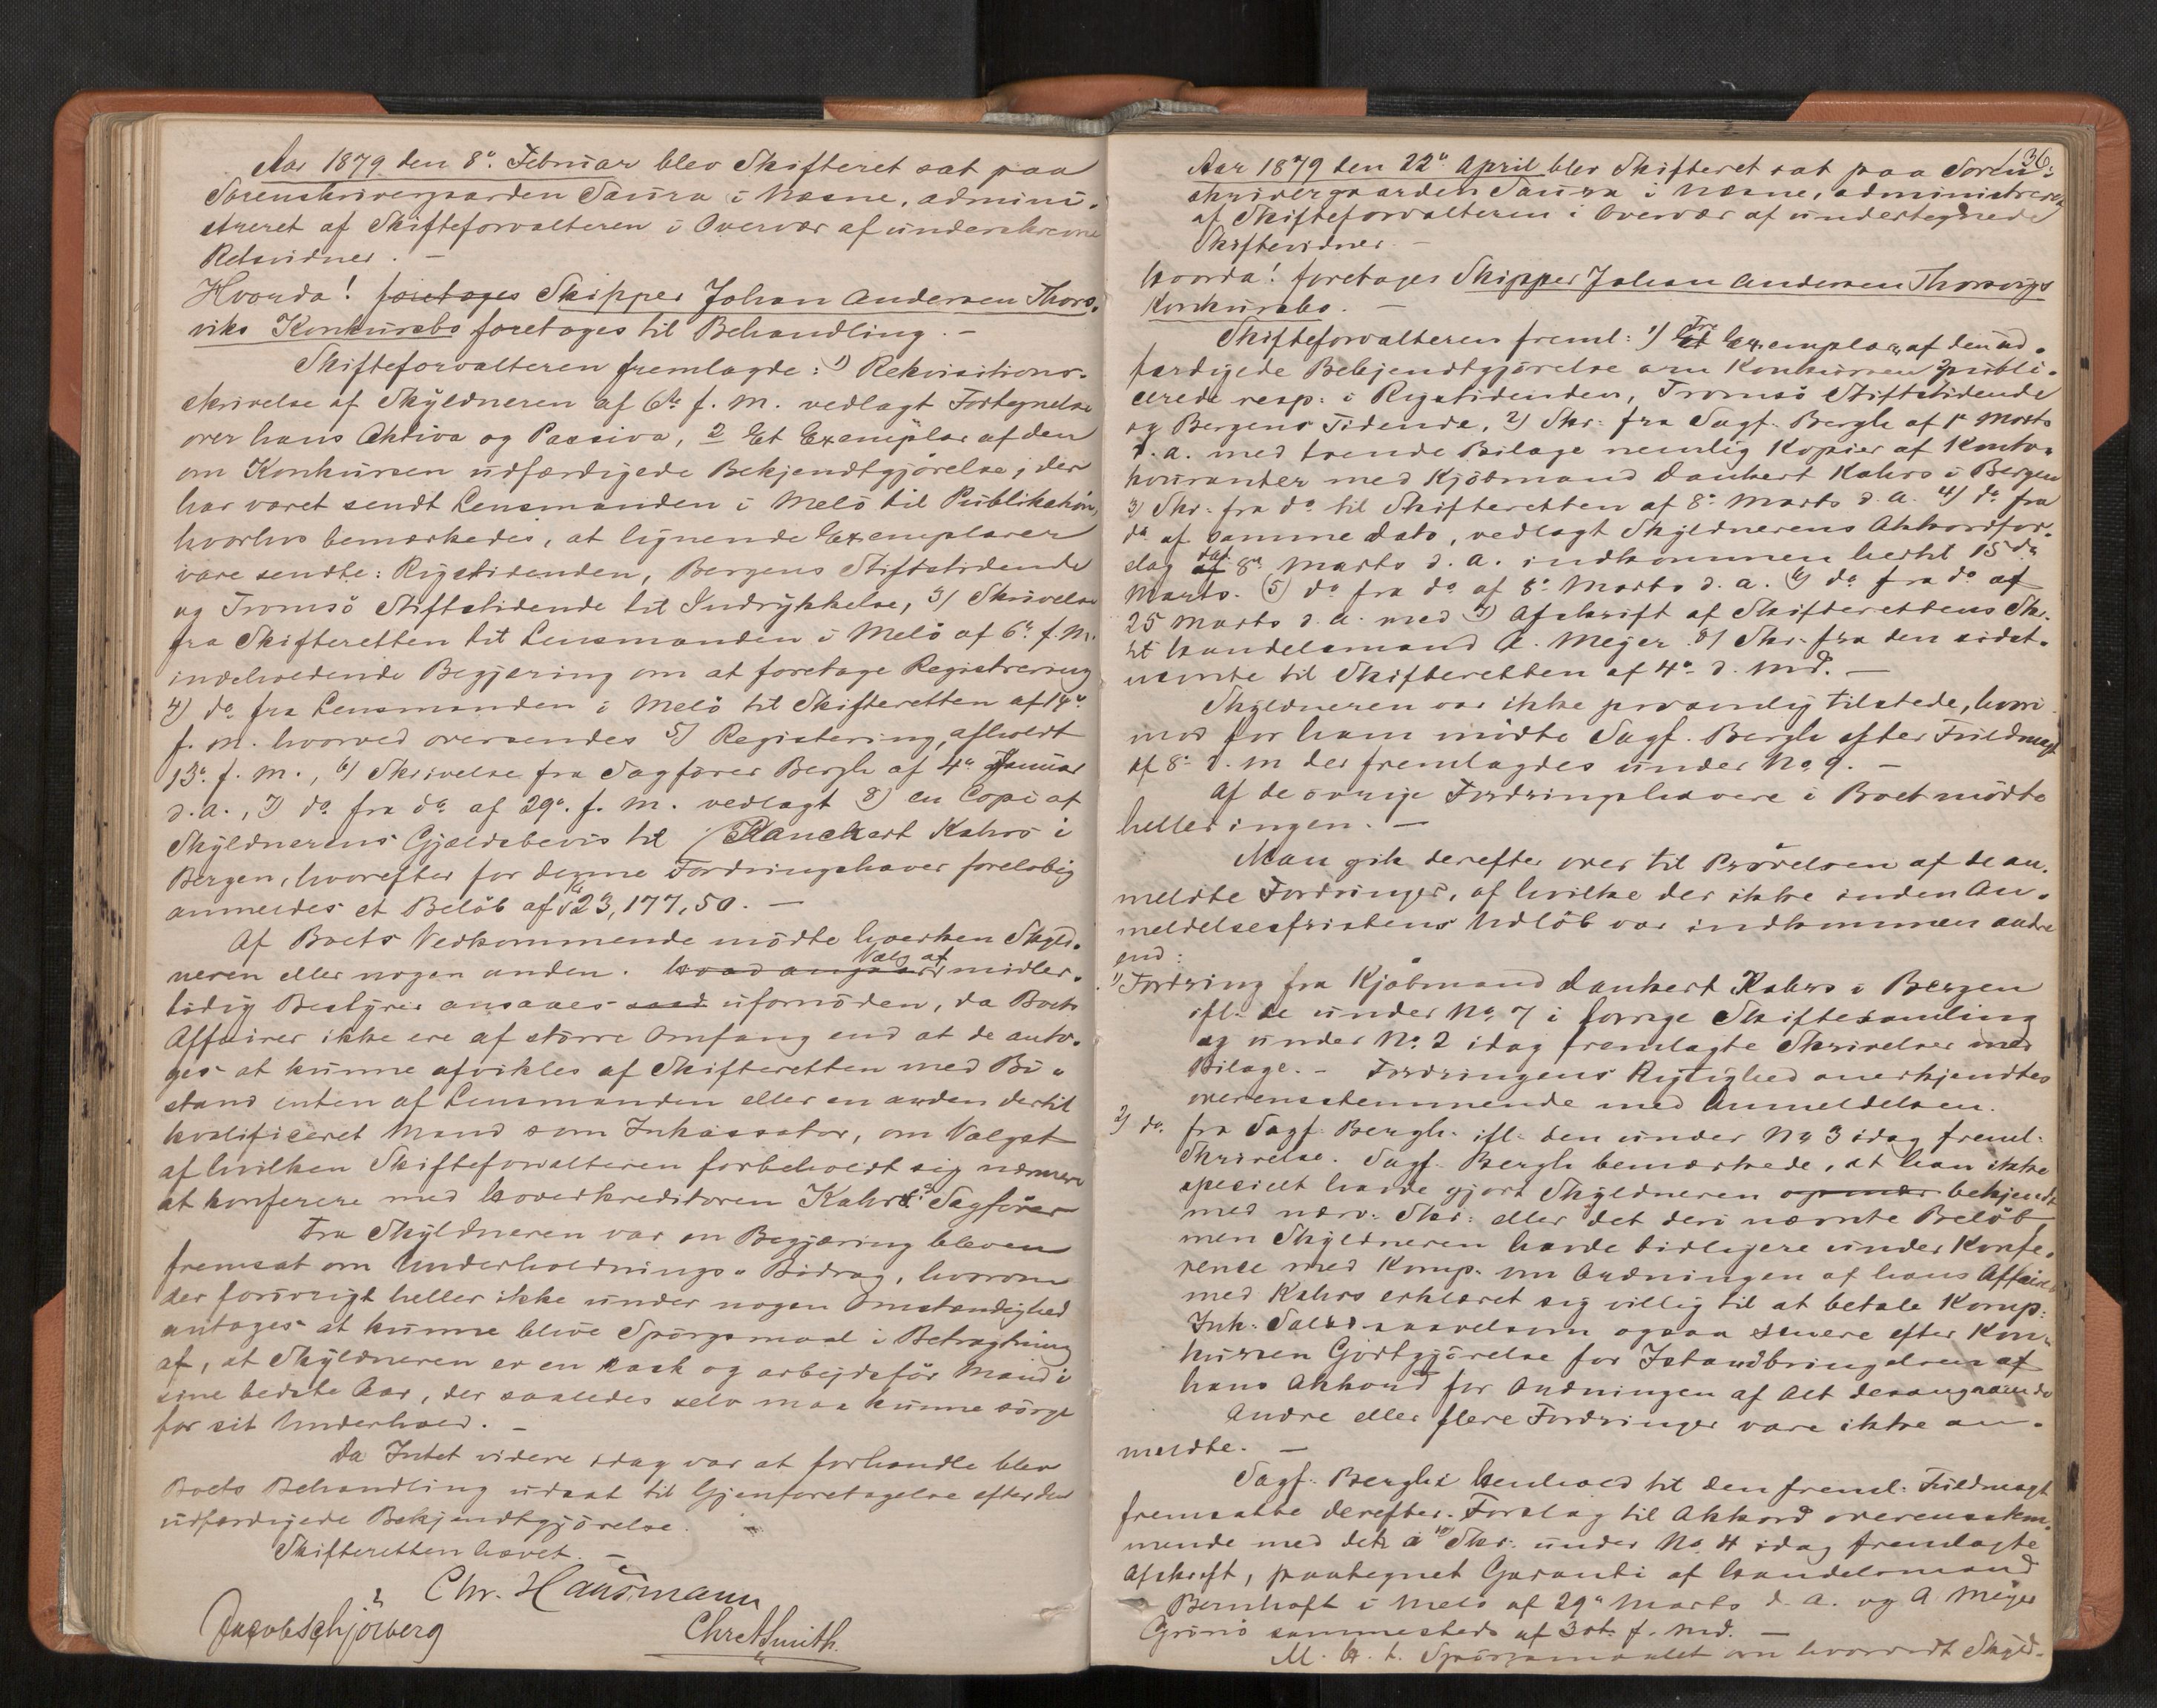 Aar 1879 den 8de Februar blev Skifteret sat paa
Sorenskrivergaarden Saura i Næsne, admini-
streret af Skifteforvalteren i Overvær af underskrevne
Retsvidner. —
Hvorda! foretages Skipper Johan Andersen Thors-
viks Konkursbo foretages til Behandling. —
Skifteforvalteren fremlagde: 1) Rekvisitions-
skrivelse af Skyldneren af 6te f. M. vedlagt Fortegnelse
over hans Aktiva og Passiva, 2 Et Exemplar af den
om Konkursen udfærdigede Bekjendtgjörelse, der
har været sendt Lensmanden i Melö til Publikation,
hvorhos bemærkedes, at lignende Exemplarer
vare sendte: Rigstidenden, Bergens Stiftstidende
og Tromsö Stiftstidende til Indrykkelse, 3) Skrivelse
fra Skifteretten til Lensmanden i Melö af 6te f. M.
indeholdende Begjæring om at foretage Registrering
4) do fra Lensmanden i Melö til Skifteretten af 14de
f. M. hvorved oversendes 5) Registering, afholdt
13de f. M., 6) Skrivelse fra Sagförer Bergh af 4de Januar
d. a., 7) do fra do af 29de f. M. vedlagt 8) en Copi af
Skyldnerens Gjældsbevis til Danckert Kahrs i
Bergen, hvorefter for denne Fordringshaver forelöbig
anmeldes et Belöb af Kr 23,177,50. —
Af Boets Vedkommende mödte hverken Skyld-
neren eller nogen anden. hvad angaar Valg af midler-
tidig Bestyrer ansaaes saad ufornöden, da Boets
Affairer ikke ere af större Omfang end at de anta-
ges at kunne afvikles af Skifteretten med Bi-
stand enten af Lensmanden eller en anden dertil
kvalificeret Mand som Inkassator, om Valget
af hvilken Skifteforvalteren forbeholdt sig nærmere
at konferere med Hovedkreditoren Kahrs's Sagförer
Fra Skyldneren var en Begjæring bleven
fremsat om Underholdnings-Bidrag, hvorom
der forövrigt heller ikke under nogen Omstændighed
antages at kunne blive Spörgsmaal i Betragtning
af, at Skyldneren er en rask og arbejdsför Mand i
sine bedste Aar, der saaledes selv maa kunne sörge
for sit Underhold. —
Da Intet videre idag var at forhandle blev
Boets Behandling udsat til Gjenforetagelse efter den
udfærdigede Bekjendtgjörelse.
Skifteretten hævet. —
Chr. Hausmann
Jacob Schjölberg Chr Smith.
36.
Aar 1879 den 22de April blev Skifteret sat paa Soren-
skrivergaarden Saura i Næsne, administreret
af Skifteforvalteren i Overvær af undertegnede
Skiftevidner. —
Hvorda! foretages Skipper Johan Andersen Thorsvigs
Konkursbo. —
Skifteforvalteren freml: 1) Et Tre Exemplarer af den ud-
færdigede Bekjendtgjörelse om Konkursen publi-
cerede resp: i Rigstidenden, Tromsö Stiftstidende
og Bergens Tidende, 2) Skr: fra Sagf. Bergh af 1ste Marts
d. a. med trende Bilage nemlig Kopier af Konto-
kouranter med Kjöbmand Dankert Kahrs i Bergen
3) Skr: fra do til Skifteretten af 8de Marts d. a. 4) do fra
do af samme Dato, vedlagt Skyldnerens Akkordfor-
slag af dat 8de Marts d. a. indkommen hertil 15de
Marts. 5) do fra do af 8de Marts d. a. 6) do fra do af
25 Marts d. a. med 7) Afskrift af Skifterettens Skr.
til Handelsmand A. Meyer 8) Skr: fra den sidst-
nævnte til Skifteretten af 4de d. Md. —
Skyldneren var ikke personlig tilstede, hvori-
mod for ham mödte Sagf. Bergh efter Fuldmagt
af 8de d. M der fremlagdes under No 9. —
Af de övrige Fordringshavere i Boet mödte
heller ingen. —
Man gik derefter over til Prövelsen af de an-
meldte Fordringer, af hvilke der ikke inden An-
meldelsesfristens Udlöb var indkommen andre
end:
1) Fordring fra Kjöbmand Dankert Kahrs i Bergen
ifl: de under No 7 i forrige Skiftesamling
og under No 2 idag fremlagte Skrivelser med
Bilage. — Fordringens Rigtighed anerkjendtes
overensstemmende med Anmeldelsen.
2) do fra Sagf. Bergh ifl: den under No 3 idag freml:
Skrivelse. Sagf. Bergh bemærkede, at han ikke
specielt havde gjort Skyldneren bekjendt
med nærv: Skr: eller det deri nævnte Belöb
men Skyldneren havde tidligere under Konfe-
rence med Komp. om Ordningen af hans Affairer
med Kahrs erklæret sig villig til at betale Komp:
Ink: Salær saavelsom ogsaa senere efter Kon-
kursen Godtgjörelse for Istandbringelsen af
hans Akkord for Ordningen af Alt desangaaende
Andre eller flere Fordringer vare ikke an-
meldte. —
Sagf. Bergh i Henhold til den freml. Fuldmagt
fremsatte derefter Forslag til Akkord overensstem-
mende med det i Skr: under No 4 idag fremlagte
Afskrift, paategnet Garanti af Handelsmand
Bernhoft i Melö af 29de Marts d. a. og A Meyer
Grönö sammesteds af 30te f. Md. —
M. H. t. Spörgsmaalet om hvorvidt Skyld-